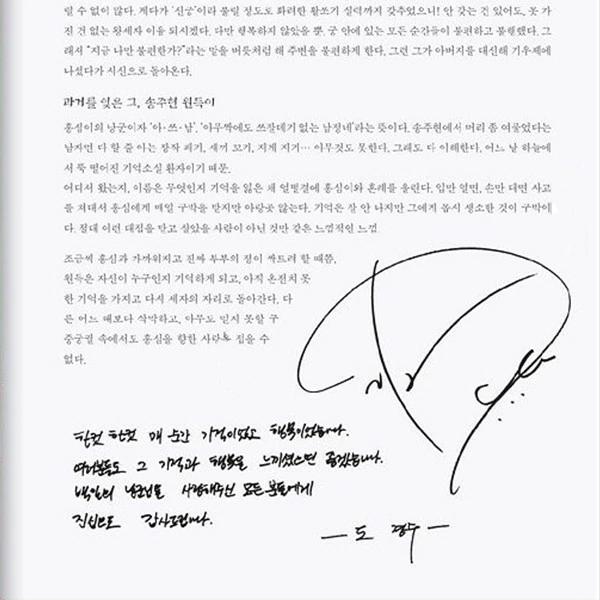 릴 수 없이 많다. 게다가 ‘신궁’이라 불릴 정도로 화려한 활쏘기 실력까지 갖추었으니! 안 갖는 건 있어도, 못 가
진 건 없는 왕세자 이율 되시겠다. 다만 행복하지 않았을 뿐. 궁 안에 있는 모든 순간들이 불편하고 불행했다. 그
래서 “지금 나만 불편한가?”라는 말을 버릇처럼 해 주변을 불편하게 한다. 그런 그가 아버지를 대신해 기우제에
나섰다가 시신으로 돌아온다.
과거를 잊은 그, 송주현 원득이
홍심이의 낭군이자 ‘아·쓰·남’, ‘아무짝에도 쓰잘데기 없는 남정네’라는 뜻이다. 송주현에서 머리 좀 여물었다는
남자면 다 할 줄 아는 장작 패기, 새끼 꼬기, 지게 지기… 아무것도 못한다. 그래도 다 이해한다. 어느 날 하늘에
서 뚝 떨어진 기억소실 환자이기 때문.
어디서 왔는지, 이름은 무엇인지 기억을 잃은 채 얼떨결에 홍심이와 혼례를 올린다. 입만 열면, 손만 대면 사고
를 쳐대서 홍심에게 매일 구박을 받지만 아랑곳 않는다. 기억은 잘 안 나지만 그에게 몹시 생소한 것이 구박이
다. 절대 이런 대접을 받고 살았을 사람이 아닌 것만 같은 느낌적인 느낌.
조금씩 홍심과 가까워지고 진짜 부부의 정이 싹트려 할 때쯤,
원득은 자신이 누구인지 기억하게 되고, 아직 온전치 못
한 기억을 가지고 다시 세자의 자리로 돌아간다. 다
른 어느 때보다 삭막하고, 아무도 믿지 못할 구
중궁궐 속에서도 홍심을 향한 사랑을 접을 수
없다.
한컷 한컷 매 순간 기억이었고 행복이었습니다.
여러분들도 그 기억과 행복을 느끼셨으면 좋겠습니다.
백일의 낭군님을 사랑해주신 모든 분들에게
진심으로 감사드립니다.
— 도 경수 —